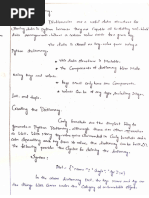 Dictionaries are a useful data structure for
storing data in Python because they are capable of
data arrangement where a
the data is stored as key-value pairs using a
Python dictionary.
* This data structure is mutable.
* The components of dictionary were made
using keys and values.
* Keys must only have one component.
* Values can be of any type
Creating the Dictionary.
Curly brackets are the simplest way to
generate a Python dictionary, although there are other approaches
as well. With many key-value pairs surrounded in curly brackets and a
colon separating each key from its value, the dictionary can be built. (:).
the following provides the syntax for defining the dictionary.
* Syntax:
Dict = {"Name": "
In the above dictionary Dict, the keys Name and
are the strings which comes under the category of immutable object.